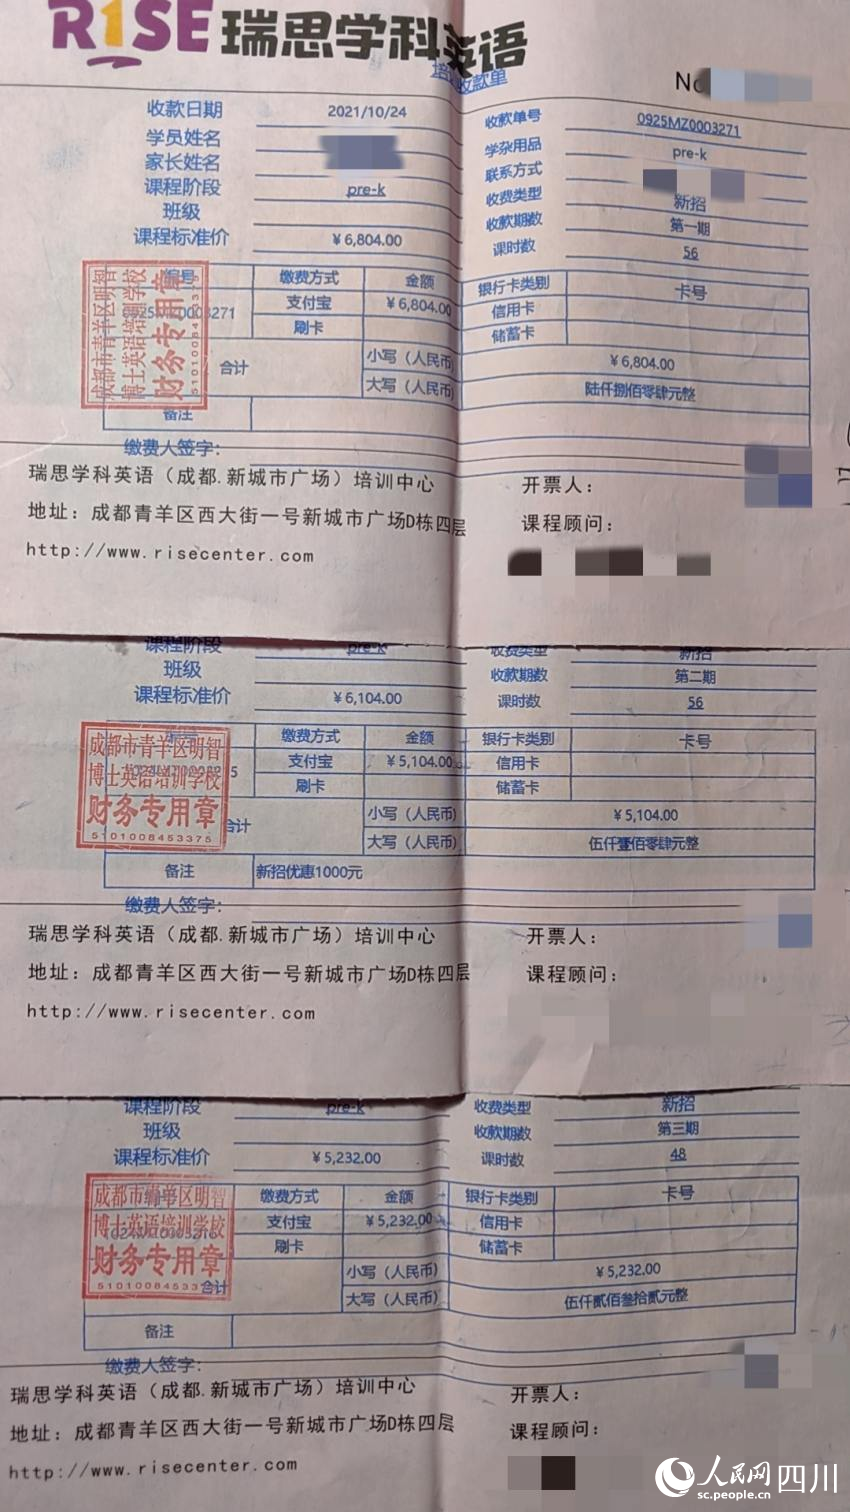 RISE 瑞思学科英语
收款单
No
收款日期 2021/10/24 收款单号 0925MZ0003271
学员姓名 学杂用品 pre-k
家长姓名 联系方式
课程阶段 pre-k 收费类型 新招
班级 收款期数 第一期
课程标准价 ¥6,804.00 课时数 56
编号 缴费方式 金额 银行卡类别 卡号
0925MZ0003271 支付宝 ¥6,804.00 信用卡
刷卡 储蓄卡
合计 小写（人民币） ¥6,804.00
大写（人民币） 陆仟捌佰零肆元整
备注
成都市青羊区明智
博士英语培训学校
财务专用章
5101008453375
缴费人签字：
瑞思学科英语（成都.新城市广场）培训中心 开票人：
地址：成都青羊区西大街一号新城市广场D栋四层 课程顾问：
http://www.risecenter.com
课程阶段 pre-k 收费类型 新招
班级 收款期数 第二期
课程标准价 ¥6,104.00 课时数 56
缴费方式 金额 银行卡类别 卡号
支付宝 ¥5,104.00 信用卡
刷卡 储蓄卡
合计 小写（人民币） ¥5,104.00
大写（人民币） 伍仟壹佰零肆元整
备注 新招优惠1000元
成都市青羊区明智
博士英语培训学校
财务专用章
5101008453375
缴费人签字：
瑞思学科英语（成都.新城市广场）培训中心 开票人：
地址：成都青羊区西大街一号新城市广场D栋四层 课程顾问：
http://www.risecenter.com
课程阶段 pre-k 收费类型 新招
班级 收款期数 第三期
课程标准价 ¥5,232.00 课时数 48
编号 缴费方式 金额 银行卡类别 卡号
支付宝 ¥5,232.00 信用卡
刷卡 储蓄卡
合计 小写（人民币） ¥5,232.00
大写（人民币） 伍仟贰佰叁拾贰元整
备注
成都市青羊区明智
博士英语培训学校
财务专用章
缴费人签字：
瑞思学科英语（成都.新城市广场）培训中心 开票人：
地址：成都青羊区西大街一号新城市广场D栋四层 课程顾问：
http://www.risecenter.com
人民网 四川
sc.people.cn